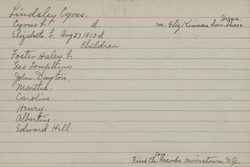 Lindsley Cyrus.
Cyrus C d. m. Eliz Kinnan dau. above
Elizabeth C. Aug 27 1810 d
Children
Foster Haley C
Geo Tompkins
John Dayton
Martha
Caroline
Henry
Albertine
Edward Hill
First Ch Records Morristown, N.J.